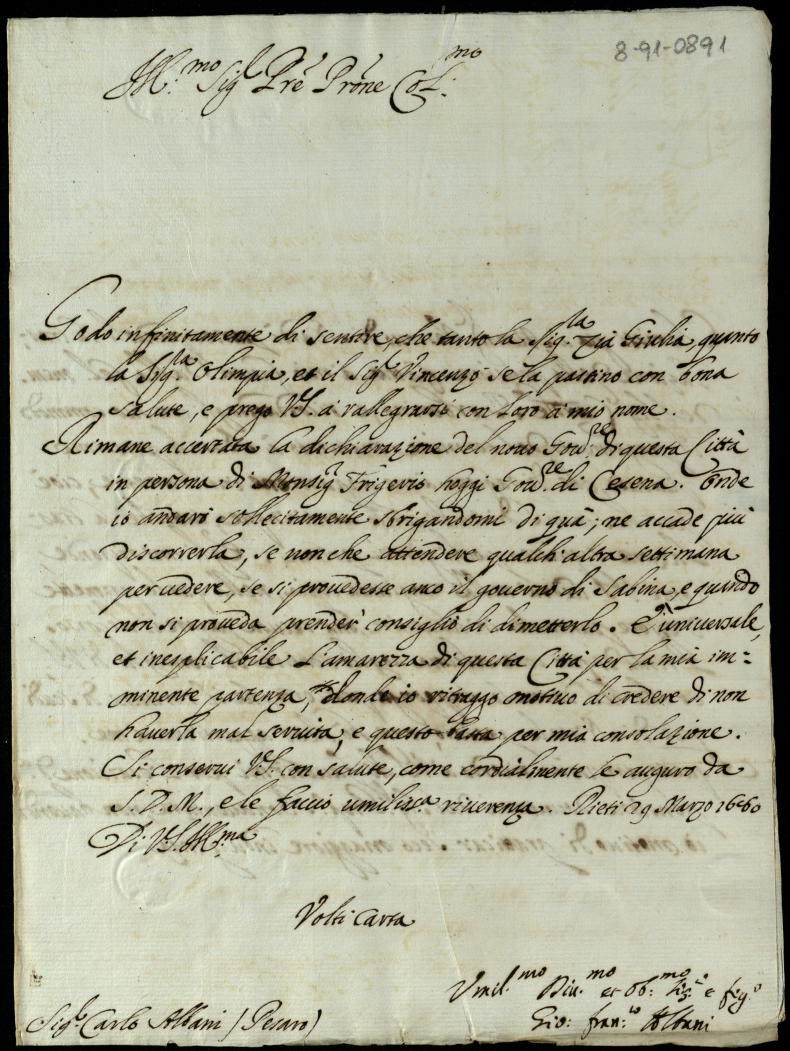 8-91-0891
Ill.mo Sig.r Pre Prone Col.mo
Godo infinitamente di sentire, che tanto la Sig.ra Zia Giulia, quanto
la Sig.ra Olimpia, et il Sig.r Vincenzo se la passino con bona
salute, e prego VS. à rallegrarsi con loro à mio nome.
Rimane accertata la dichiarazione del novo Gov.re di questa Città
in persona di Monsig.r Frigerio hoggi Gov.re di Cesena. Onde
io andarò sollecitamente sbrigandomi di quà; ne accade più
discorrerla, se non che attendere qualch'altra settimana
per vedere, se si provedesse anco il governo di Sabina, e quando
non si proveda prender consiglio di dimetterlo. È universale,
et inesplicabile l'amarezza di questa Città per la mia im=
minente partenza, donde io ritraggo motivo di credere di non
haverla mal servita, e questo basta per mia consolazione.
Si conservi VS. con salute, come cordialmente le auguro da
S. D. M., e le faccio umiliss.a riverenza. Rieti 29 Marzo 1660
Di VS. Ill.ma
Volti carta
Umil.mo Div.mo et Ob.mo e fig.o
Gio: Fran.co Albani
Sig.r Carlo Albani (Pesaro)